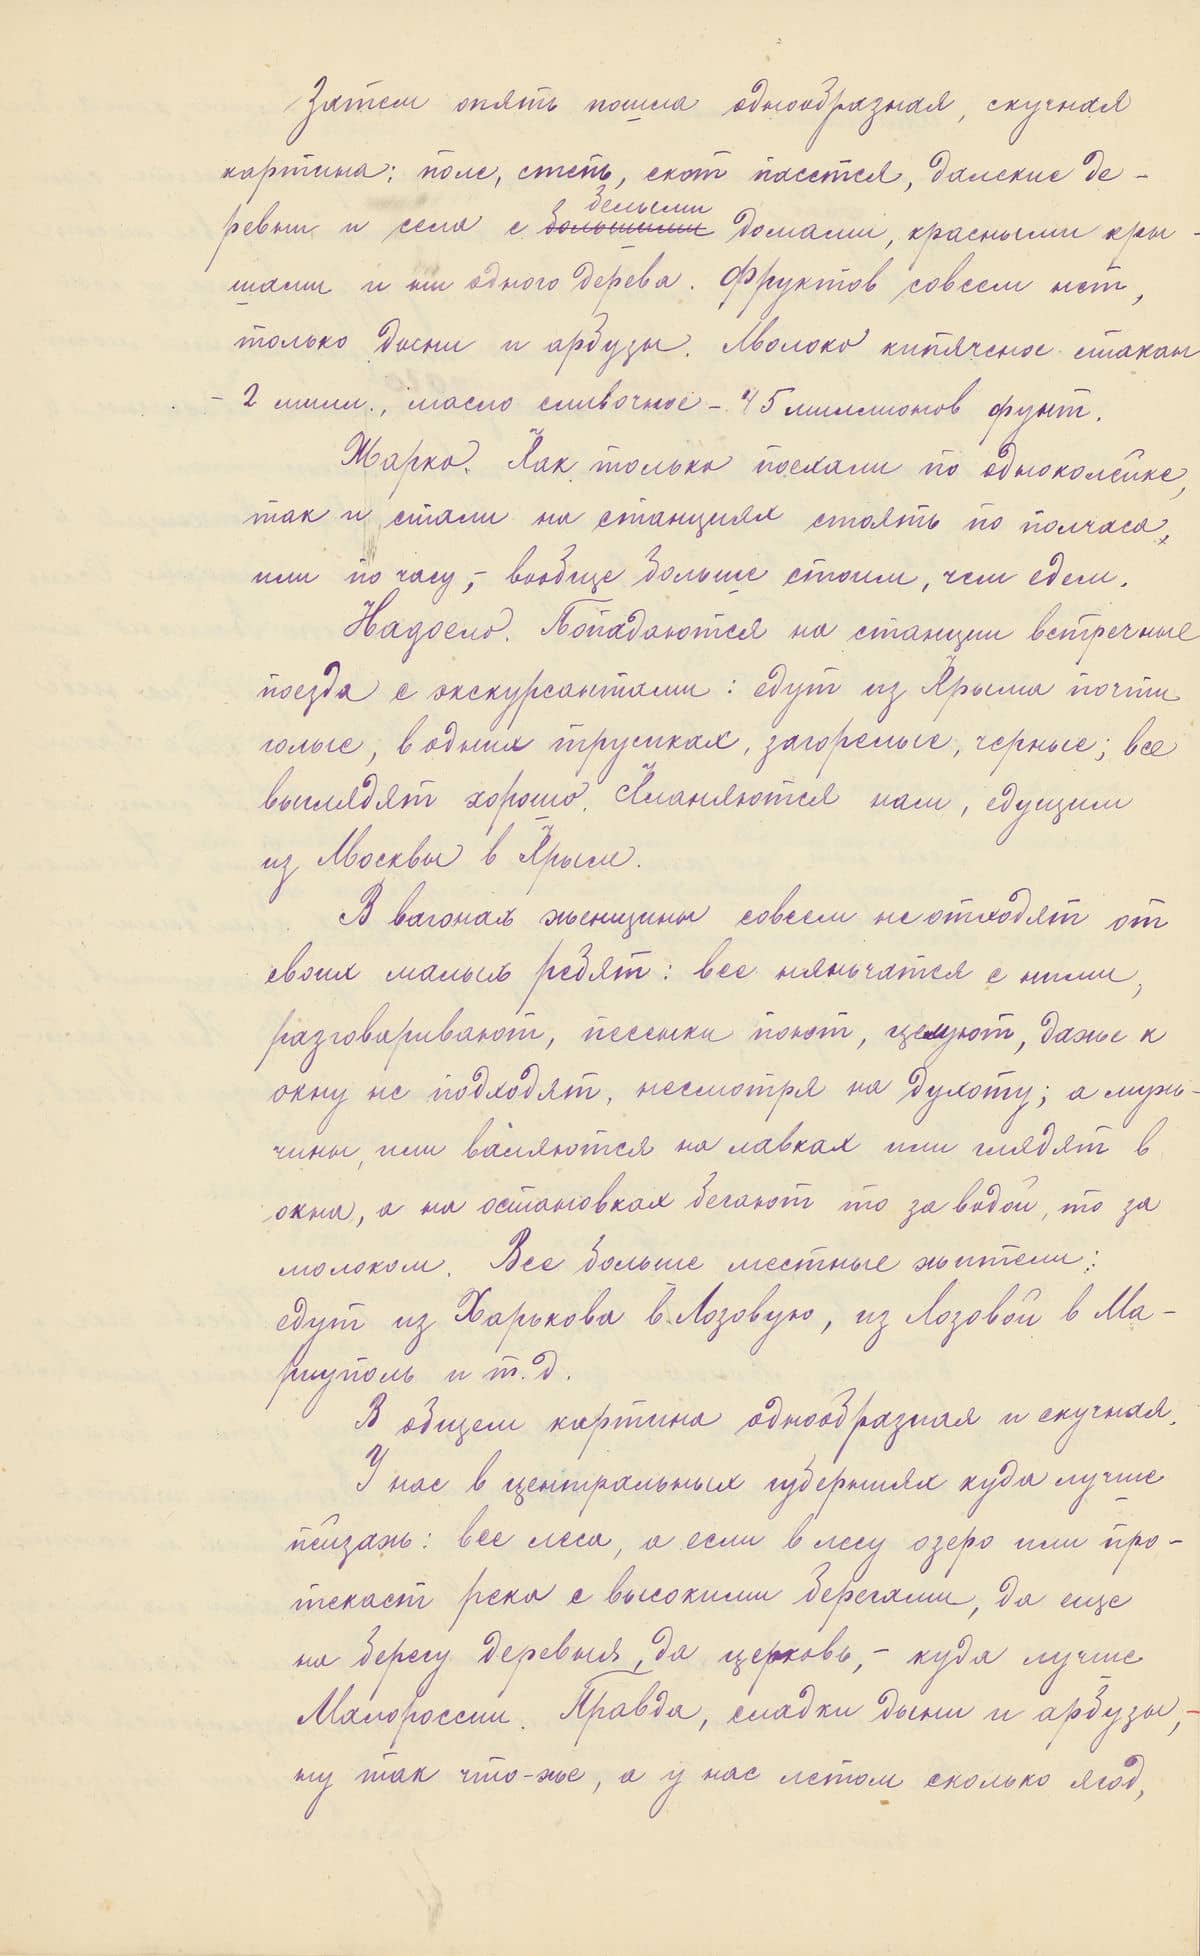 Затем опять пошла однообразная, скучная
картина: поле, степь, скот пасется, далекие де-
ревни и села с большими белыми домами, красными кры-
шами и ни одного дерева. Фруктов совсем нет,
только дыни и арбузы. Молоко кипяченое стакан
- 2 милл., масло сливочное - 45 миллионов фунт.
Жарко. Как только поехали по одноколейке,
так и стали на станциях стоять по полчаса,
или по часу, - вообще больше стоим, чем едем.
Надоело. Попадаются на станции встречные
поезда с экскурсантами: едут из Крыма почти
голые, в одних трусиках, загорелые, черные; все
выглядят хорошо. Кланяются нам, едущим
из Москвы в Крым.
В вагонах женщины совсем не отходят от
своих малых ребят: все нянчатся с ними,
разговаривают, песенки поют, целуют, даже к
окну не подходят, несмотря на духоту; а муж-
чины, или валяются на лавках или глядят в
окна, а на остановках бегают то за водой, то за
молоком. Все больше местные жители:
едут из Харькова в Лозовую, из Лозовой в Ма-
риуполь и т.д.
В общем картина однообразная и скучная.
У нас в центральных губерниях куда лучше
пейзаж: все леса, а если в лесу озеро или про-
текает река с высокими берегами, да еще
на берегу деревня, да церковь, - куда лучше
Малороссии. Правда, сладки дыни и арбузы, -
ну так что-же, а у нас летом сколько ягод,